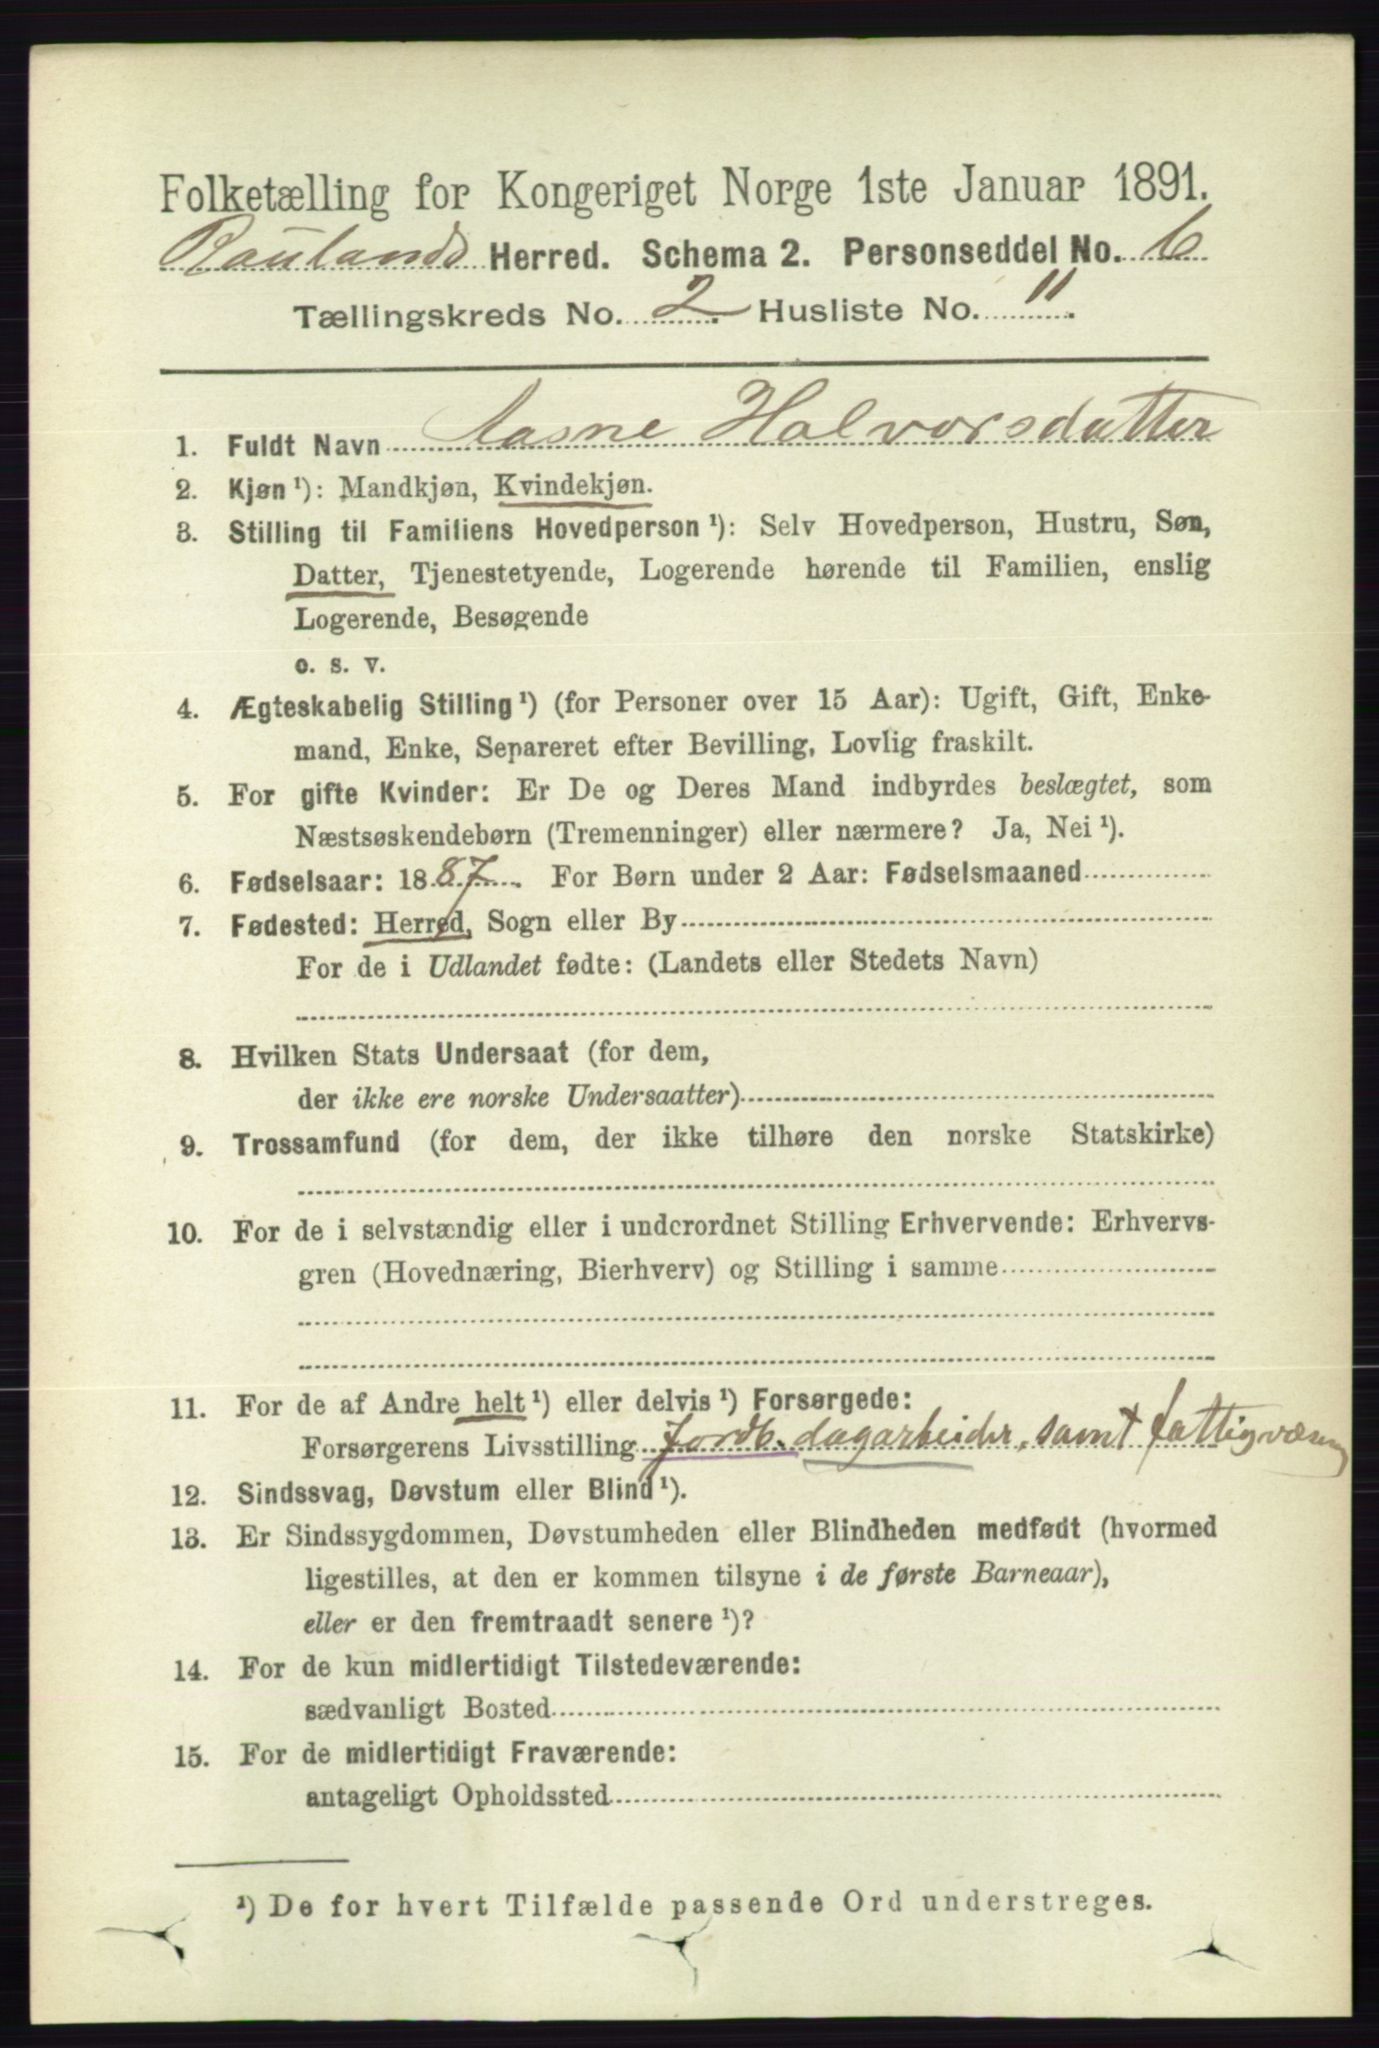 Folketælling for Kongeriget Norge 1ste Januar 1891.
Raulands Herred. Schema 2. Personseddel No. 6
Tællingskreds No. 2. Husliste No. 11.
1. Fuldt Navn Aasne Halvorsdatter
2. Kjøn ¹): Mandkjøn, Kvindekjøn.
3. Stilling til Familiens Hovedperson ¹): Selv Hovedperson, Hustru, Søn,
Datter, Tjenestetyende, Logerende hørende til Familien, enslig
Logerende, Besøgende
o. s. v.
4. Ægteskabelig Stilling ¹) (for Personer over 15 Aar): Ugift, Gift, Enke-
mand, Enke, Separeret efter Bevilling, Lovlig fraskilt.
5. For gifte Kvinder: Er De og Deres Mand indbyrdes beslægtet, som
Næstsøskendebørn (Tremenninger) eller nærmere? Ja, Nei ¹).
6. Fødselsaar: 1887. For Børn under 2 Aar: Fødselsmaaned
7. Fødested: Herred, Sogn eller By
For de i Udlandet fødte: (Landets eller Stedets Navn)
8. Hvilken Stats Undersaat (for dem,
der ikke ere norske Undersaatter)
9. Trossamfund (for dem, der ikke tilhøre den norske Statskirke)
10. For de i selvstændig eller i underordnet Stilling Erhvervende: Erhvervs-
gren (Hovednæring, Bierhverv) og Stilling i samme
11. For de af Andre helt ¹) eller delvis ¹) Forsørgede:
Forsørgerens Livsstilling Jordb. dagarbeider, samt fattigvæsen
12. Sindssvag, Døvstum eller Blind ¹).
13. Er Sindssygdommen, Døvstumheden eller Blindheden medfødt (hvormed
ligestilles, at den er kommen tilsyne i de første Barneaar),
eller er den fremtraadt senere ¹)?
14. For de kun midlertidigt Tilstedeværende:
sædvanligt Bosted
15. For de midlertidigt Fraværende:
antageligt Opholdssted
¹) De for hvert Tilfælde passende Ord understreges.